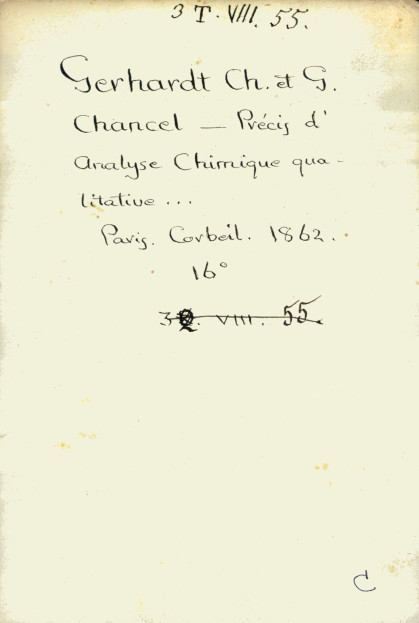 3 T. VIII. 55.
Gerhardt Ch. et G.
Chancel — Précis d'
Analyse Chimique qua-
litative ...
Paris. Corbeil. 1862.
16°
3 . VIII. 55.
C